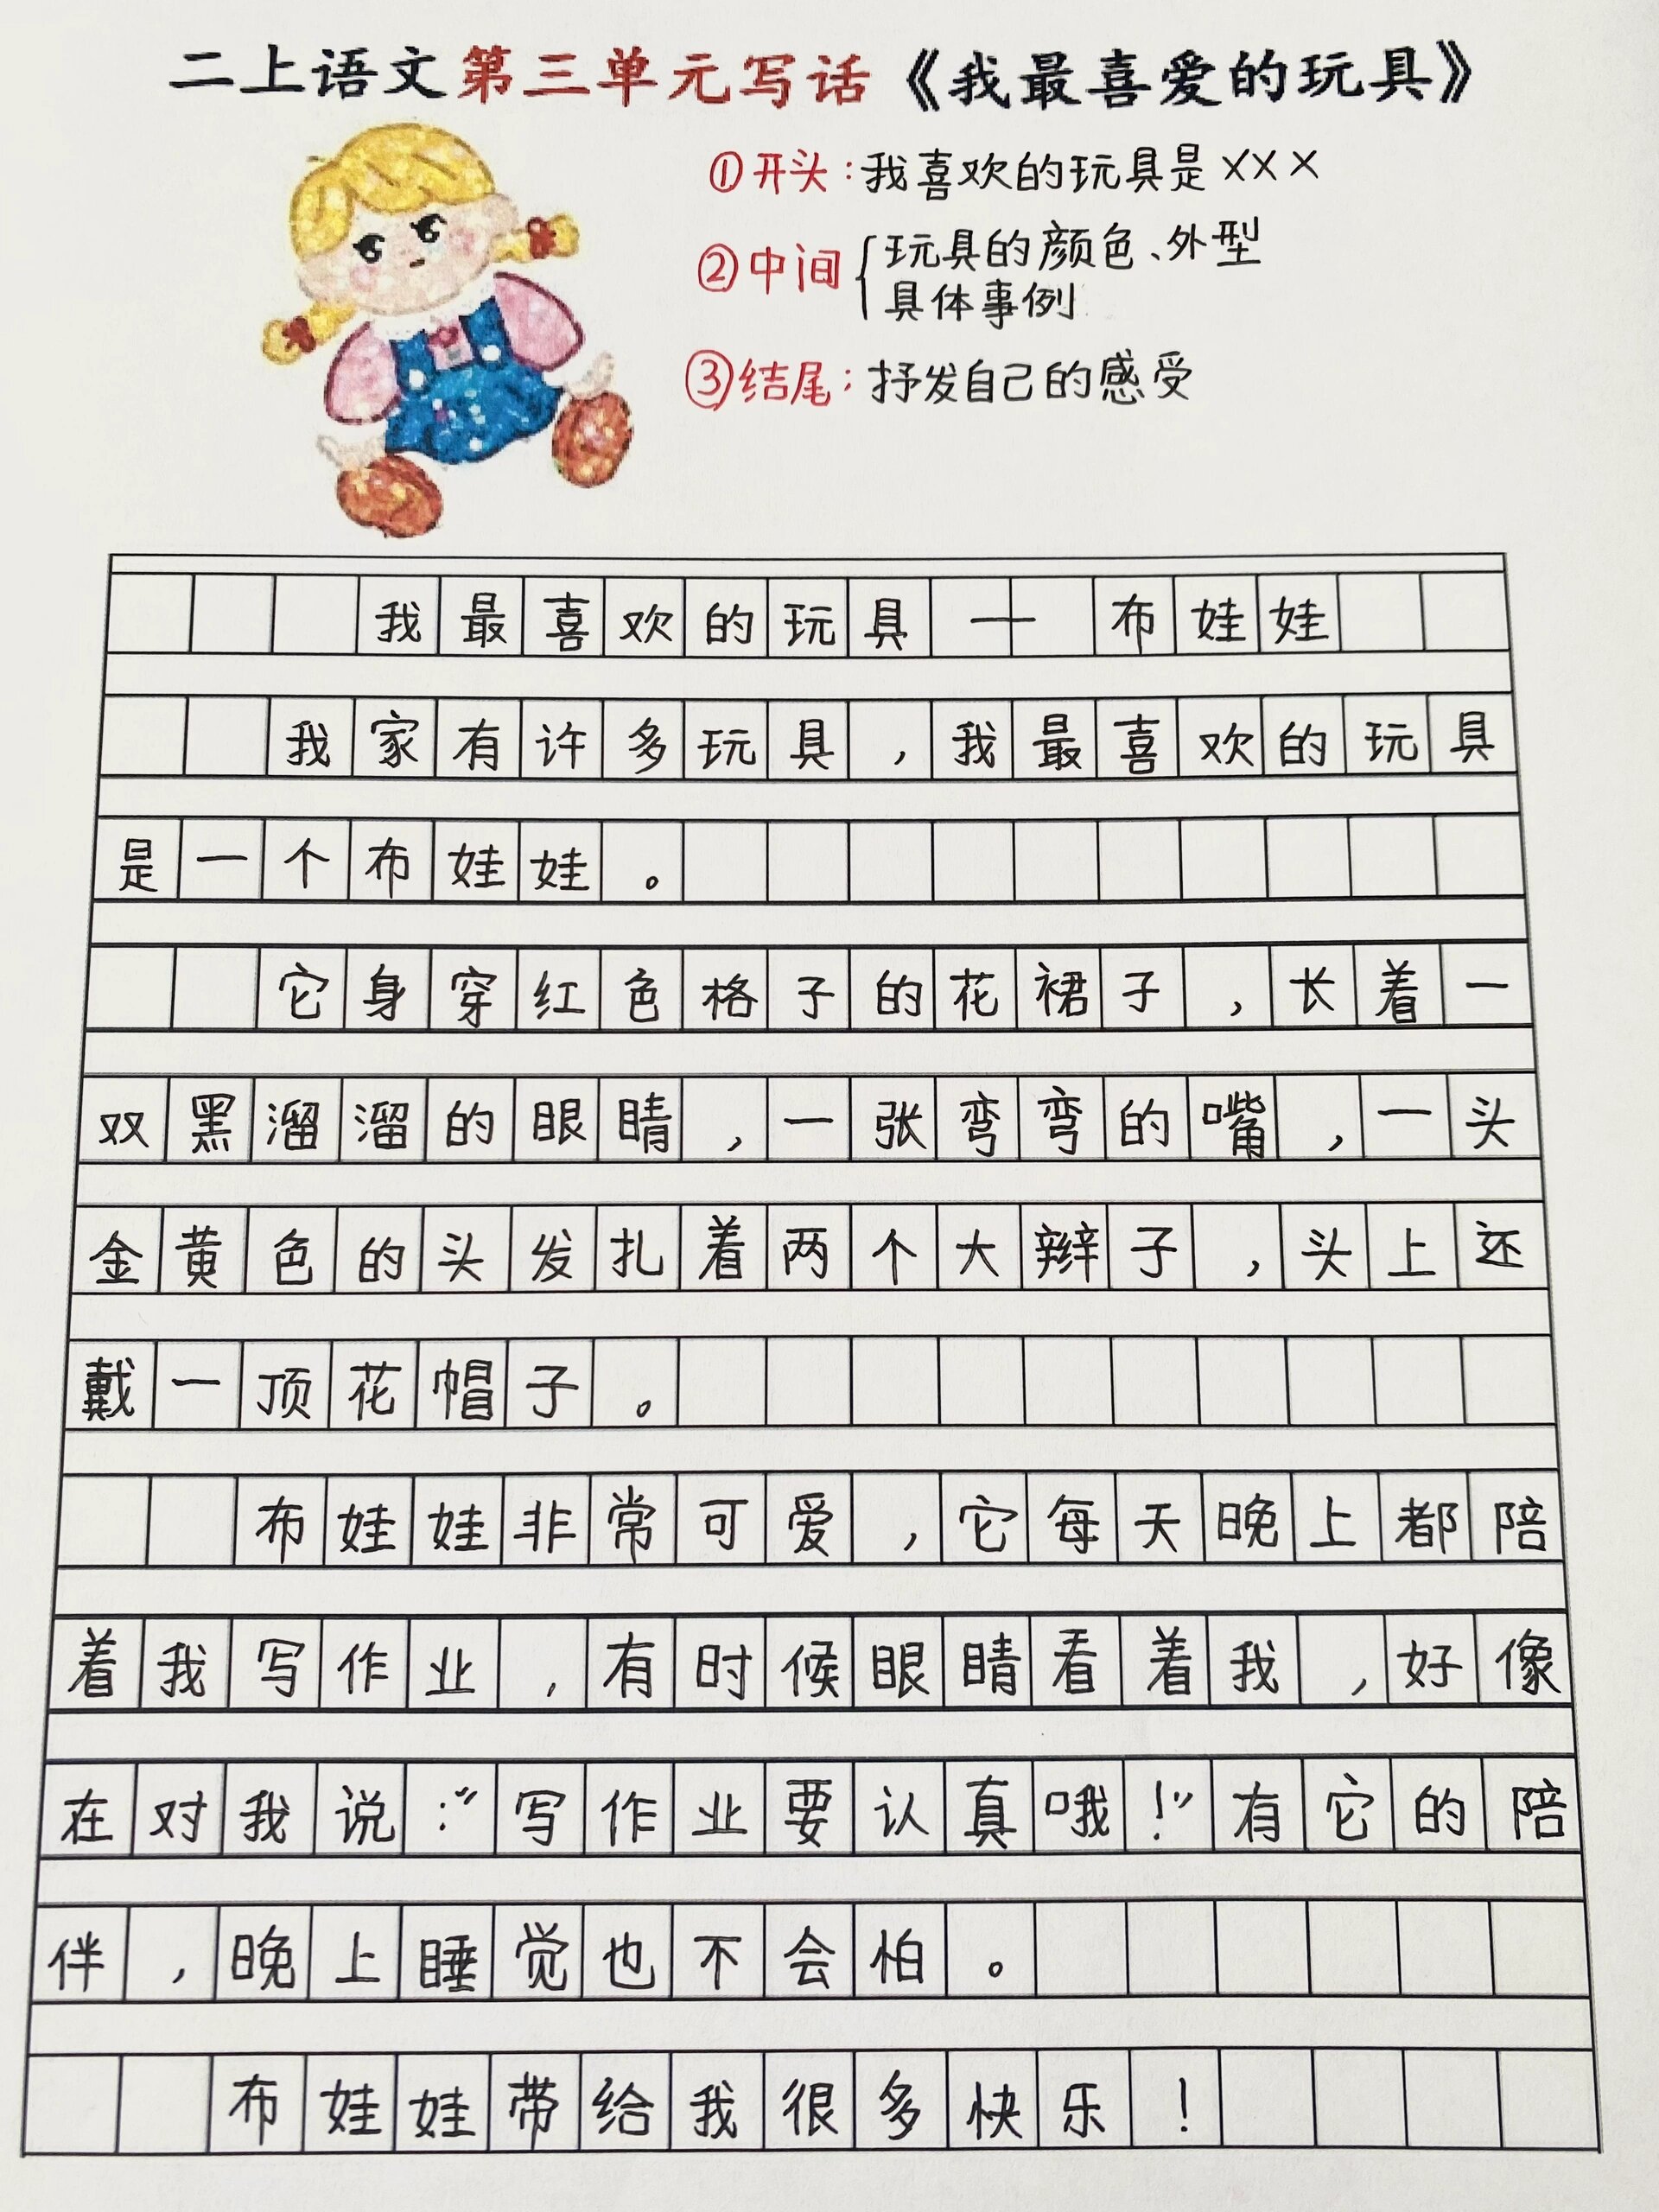 二上语文第三单元写话《我最喜爱的玩具》
①开头:我喜欢的玩具是×××
②中间{玩具的颜色、外型
具体事例
③结尾:抒发自己的感受
我最喜欢的玩具——布娃娃
我家有许多玩具,我最喜欢的玩具
是一个布娃娃。
它身穿红色格子的花裙子,长着一
双黑溜溜的眼睛,一张弯弯的嘴,一头
金黄色的头发扎着两个大辫子,头上还
戴一顶花帽子。
布娃娃非常可爱,它每天晚上都陪
着我写作业,有时候眼睛看着我,好像
在对我说:“写作业要认真哦!”有它的陪
伴,晚上睡觉也不会怕。
布娃娃带给我很多快乐!